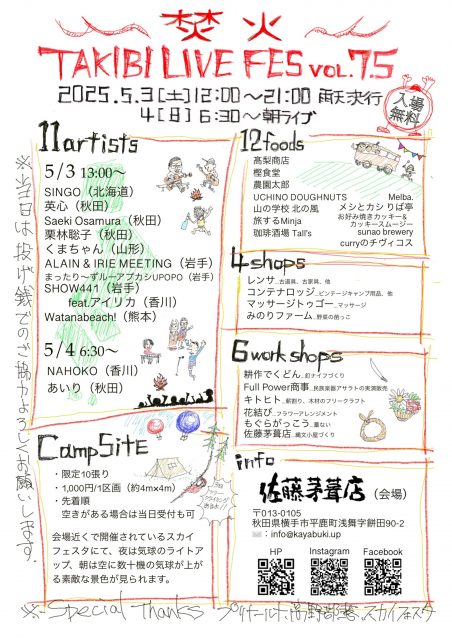 焚火
TAKIBI LIVE FES VOL.7.5
2025.5.3[土]12:00〜21:00 雨天決行
4[日]6:30〜朝ライブ
入場
無料
11artists
5/3 13:00〜
SINGO（北海道）
英心（秋田）
Saeki Osamura（秋田）
栗林聡子（秋田）
くまちゃん（山形）
ALAIN & IRIE MEETING（岩手）
まったり〜ずルーアプカシUPOPO（岩手）
SHOW441（岩手）
feat.アイリカ（香川）
Watanabeach!（熊本）
5/4 6:30〜
NAHOKO（香川）
あいり（秋田）
12foods
髙梨商店
樫食堂
農園太郎
UCHINO DOUGHNUTS
山の学校 北の風
旅するMinja
珈琲酒場 Tall's
Melba.
メシとカシ りぱ亭
お好み焼きカッキー&
カッキースムージー
sunao brewery
curryのチヴィコス
4shops
レンサ...古道具、古家具、他
コンテナロッジ...ビンテージキャンプ用品、他
マッサージトゥゴー...マッサージ
みのりファーム...野菜の苗っこ
6workshops
耕作でくどん...釘ナイフづくり
Full Power商事...民族楽器アサラトの実演販売
キトヒト...薪割り、木材のフリークラフト
花結び...フラワーアレンジメント
もぐらがっこう...墨ない
佐藤茅葺店...縄文小屋づくり
CampSite
・限定10張り
・1,000円/1区画（約4m×4m）
・先着順
空きがある場合は当日受付も可
会場近くで開催されているスカイ
フェスタにて、夜は気球のライトア
ップ、朝は空に数十機の気球が上が
る素敵な景色が見られます。
info
佐藤茅葺店（会場）
〒013-0105
秋田県横手市平鹿町浅舞字餅田90-2
✉：info@kayabuki.up
HP
Instagram
Facebook
※当日は投げ銭でのご協力よろしくお願いします。
※Special Thanks